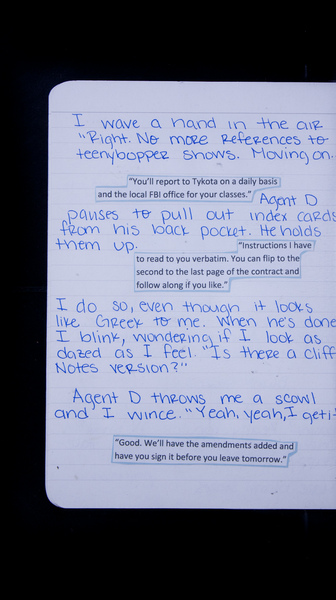 I wave a hand in the air
"Right. No more references to
teenybopper shows. Moving on.
"You'll report to Tykota on a daily basis
and the local FBI office for your classes." Agent D
pauses to pull out index cards
from his back pocket. He holds
them up. "Instructions I have
to read to you verbatim. You can flip to the
second to the last page of the contract and
follow along if you like."
I do so, even though it looks
like Greek to me. When he's done
I blink, wondering if I look as
dazed as I feel. "Is there a Cliff
Notes version?"
Agent D throws me a scowl
and I wince. "Yeah, yeah, I get i
"Good. We'll have the amendments added and
have you sign it before you leave tomorrow."